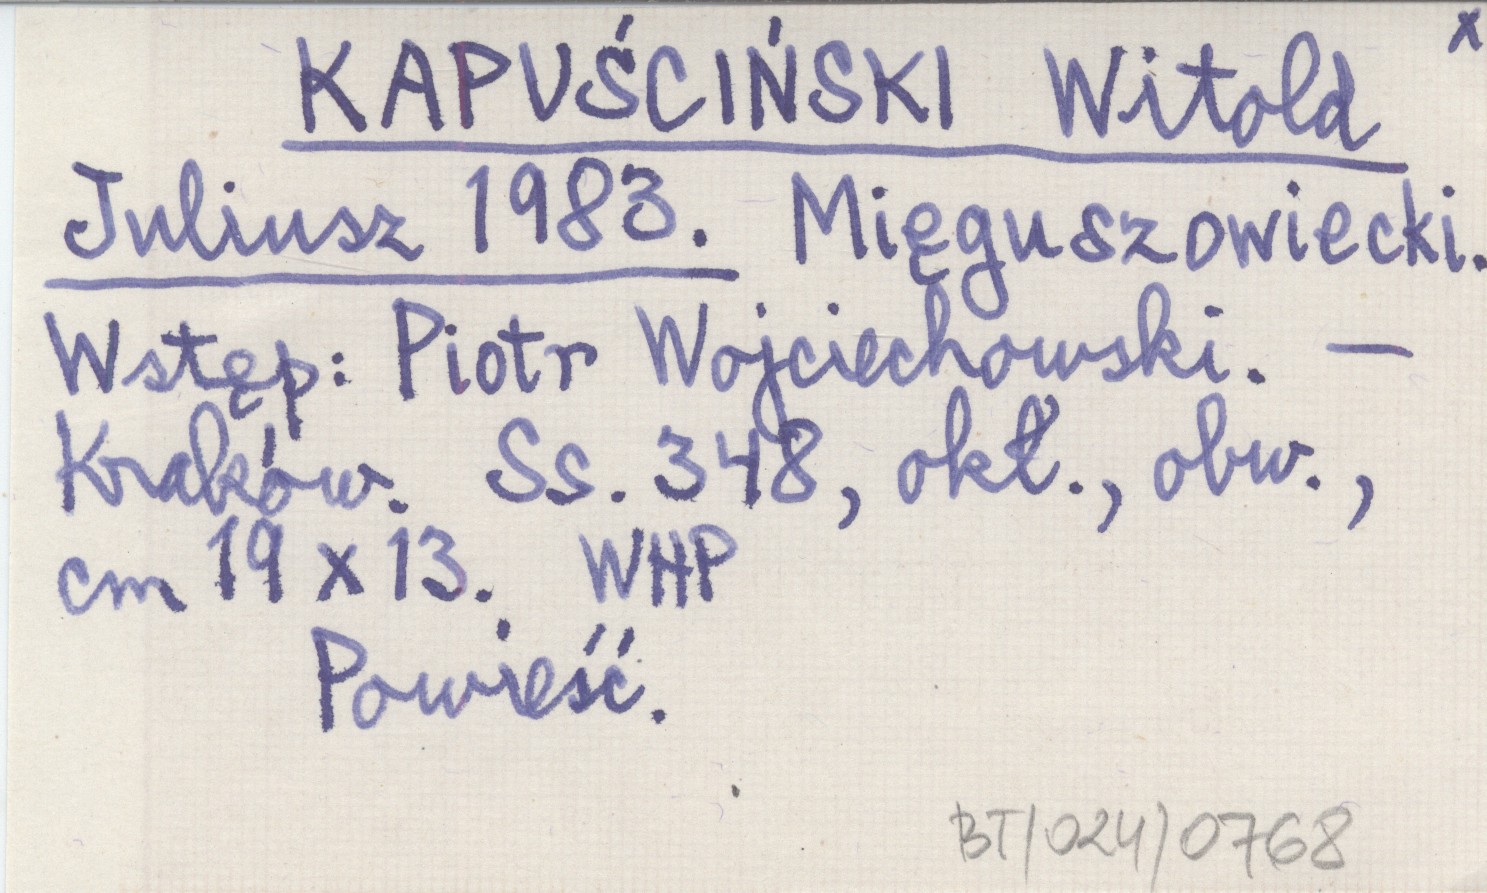 x
KAPUŚCIŃSKI Witold
Juliusz 1983. Mięguszowiecki.
Wstęp: Piotr Wojciechowski. —
Kraków. Ss. 348, okł., obw.,
cm 19 x 13. WHP
Powieść.
BT/024/0768